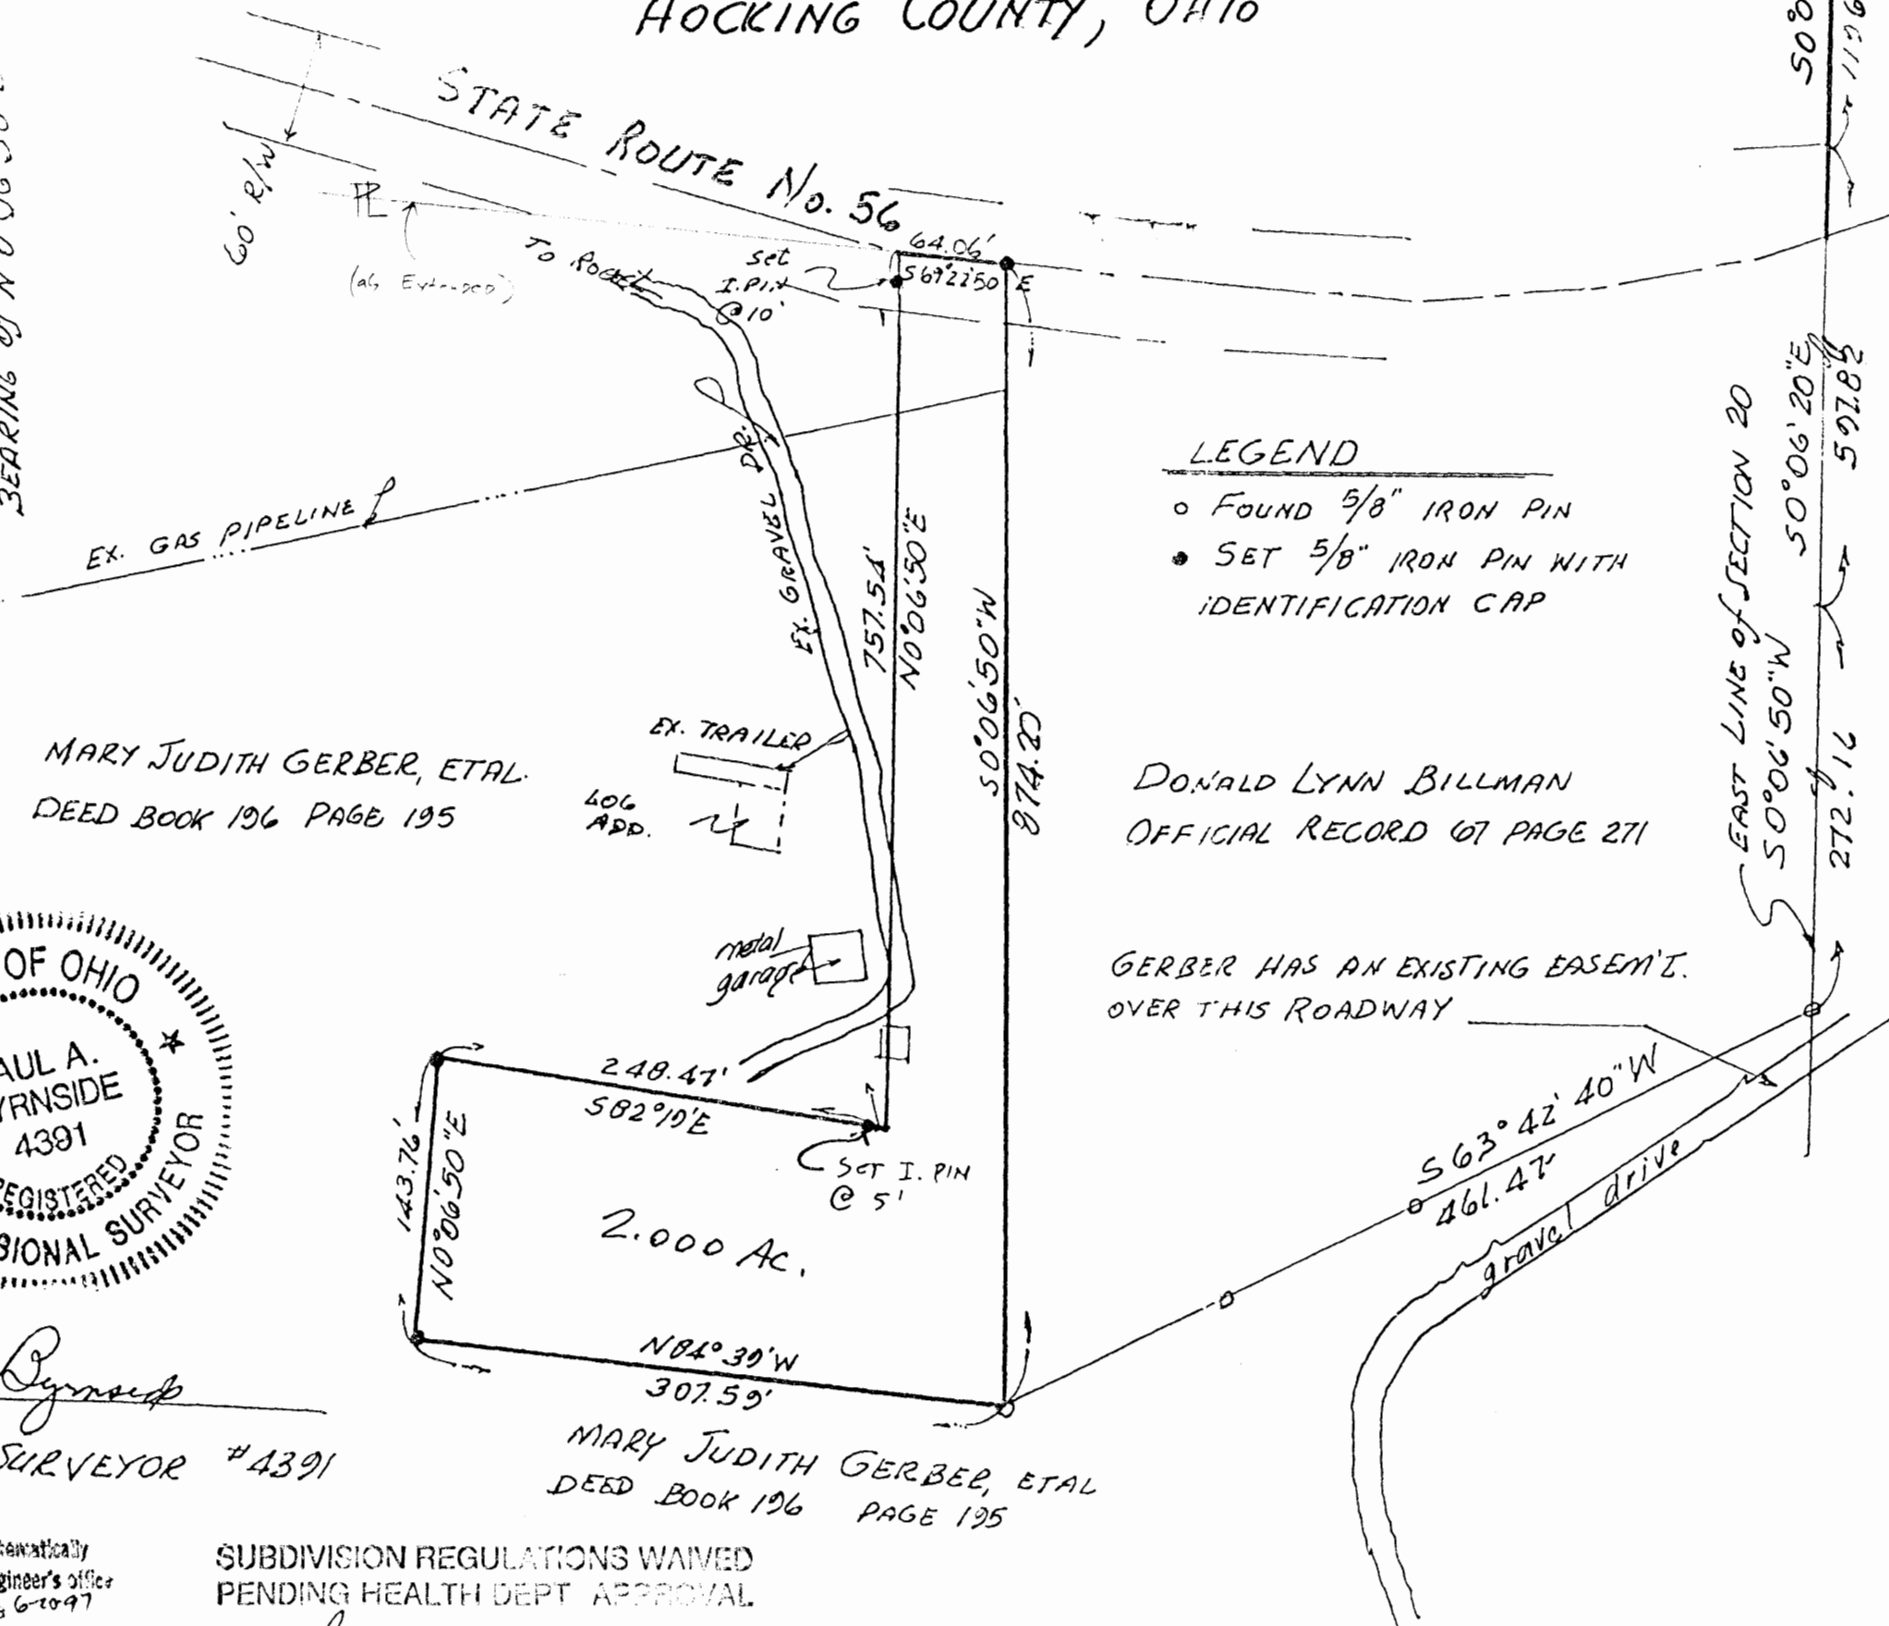 HOCKING COUNTY, OHIO
STATE ROUTE No. 56
60' R/W
PL
(as Extended)
TO ROCKET
set
I.PIN
@ 10'
64.06'
S69°22'50 E
BEARING of N 0°06'50"
S0°0
1196
EX. GAS PIPELINE
EX. GRAVEL DR.
757.54'
N0°06'50"E
S0°06'50"W
874.20'
LEGEND
○ FOUND 5/8" IRON PIN
● SET 5/8" IRON PIN WITH
IDENTIFICATION CAP
EAST LINE of SECTION 20
S0°06'20"E
597.82
S0°06'50"W
272.16
MARY JUDITH GERBER, ETAL.
DEED BOOK 196 PAGE 195
EX. TRAILER
LOG
ADD.
DONALD LYNN BILLMAN
OFFICIAL RECORD 67 PAGE 271
metal
garage
GERBER HAS AN EXISTING EASEM'T.
OVER THIS ROADWAY
OF OHIO
AUL A.
YRNSIDE
4391
REGISTERED
SIONAL SURVEYOR
248.47'
S82°19'E
143.76'
N0°06'50"E
SET I. PIN
@ 5'
2.000 Ac.
S63°42'40"W
461.47'
gravel drive
N84°39'W
307.59'
Byrnside
SURVEYOR #4391
MARY JUDITH GERBER, ETAL
DEED BOOK 196 PAGE 195
tematically
gineer's office
6-20-97
SUBDIVISION REGULATIONS WAIVED
PENDING HEALTH DEPT APPROVAL